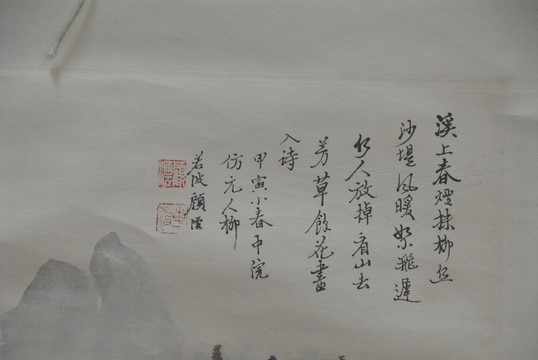 溪上春煙抹柳丝
沙堤風暖絮飛遲
人放棹看山去
芳草餘花畫
入诗
甲寅小春中浣
仿元人柳
若波顧澐